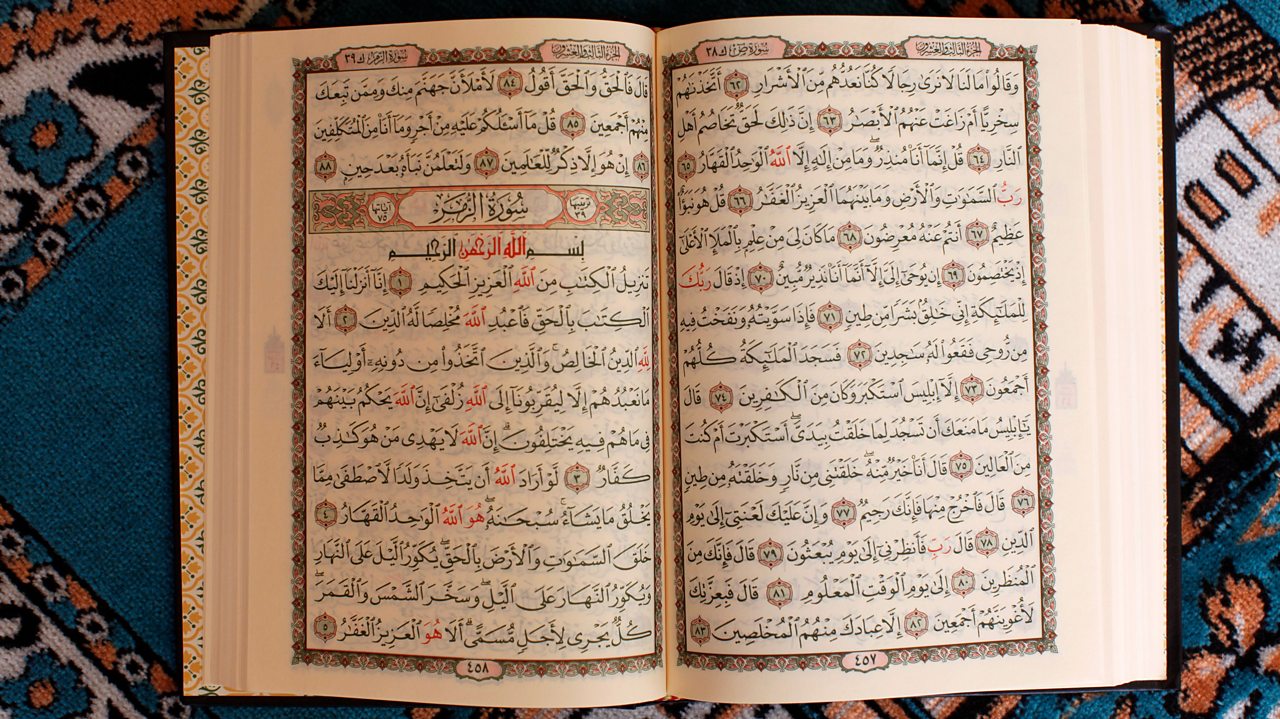 سورة ص ك ٣٨
الجزء الثالث والعشرون
وَقَالُوا۟ مَا لَنَا لَا نَرَىٰ رِجَالًا كُنَّا نَعُدُّهُم مِّنَ ٱلْأَشْرَارِ ٦٢ أَتَّخَذْنَٰهُمْ
سِخْرِيًّا أَمْ زَاغَتْ عَنْهُمُ ٱلْأَبْصَٰرُ ٦٣ إِنَّ ذَٰلِكَ لَحَقٌّ تَخَاصُمُ أَهْلِ
ٱلنَّارِ ٦٤ قُلْ إِنَّمَآ أَنَا۠ مُنذِرٌ ۖ وَمَا مِنْ إِلَٰهٍ إِلَّا ٱللَّهُ ٱلْوَٰحِدُ ٱلْقَهَّارُ ٦٥
رَبُّ ٱلسَّمَٰوَٰتِ وَٱلْأَرْضِ وَمَا بَيْنَهُمَا ٱلْعَزِيزُ ٱلْغَفَّٰرُ ٦٦ قُلْ هُوَ نَبَؤٌا۟
عَظِيمٌ ٦٧ أَنتُمْ عَنْهُ مُعْرِضُونَ ٦٨ مَا كَانَ لِىَ مِنْ عِلْمٍۭ بِٱلْمَلَإِ ٱلْأَعْلَىٰٓ
إِذْ يَخْتَصِمُونَ ٦٩ إِن يُوحَىٰٓ إِلَىَّ إِلَّآ أَنَّمَآ أَنَا۠ نَذِيرٌ مُّبِينٌ ٧٠ إِذْ قَالَ رَبُّكَ
لِلْمَلَٰٓئِكَةِ إِنِّى خَٰلِقٌۢ بَشَرًا مِّن طِينٍ ٧١ فَإِذَا سَوَّيْتُهُۥ وَنَفَخْتُ فِيهِ
مِن رُّوحِى فَقَعُوا۟ لَهُۥ سَٰجِدِينَ ٧٢ فَسَجَدَ ٱلْمَلَٰٓئِكَةُ كُلُّهُمْ
أَجْمَعُونَ ٧٣ إِلَّآ إِبْلِيسَ ٱسْتَكْبَرَ وَكَانَ مِنَ ٱلْكَٰفِرِينَ ٧٤ قَالَ
يَٰٓإِبْلِيسُ مَا مَنَعَكَ أَن تَسْجُدَ لِمَا خَلَقْتُ بِيَدَىَّ ۖ أَسْتَكْبَرْتَ أَمْ كُنتَ
مِنَ ٱلْعَالِينَ ٧٥ قَالَ أَنَا۠ خَيْرٌ مِّنْهُ ۖ خَلَقْتَنِى مِن نَّارٍ وَخَلَقْتَهُۥ مِن طِينٍ
٧٦ قَالَ فَٱخْرُجْ مِنْهَا فَإِنَّكَ رَجِيمٌ ٧٧ وَإِنَّ عَلَيْكَ لَعْنَتِىٓ إِلَىٰ يَوْمِ
ٱلدِّينِ ٧٨ قَالَ رَبِّ فَأَنظِرْنِىٓ إِلَىٰ يَوْمِ يُبْعَثُونَ ٧٩ قَالَ فَإِنَّكَ مِنَ
ٱلْمُنظَرِينَ ٨٠ إِلَىٰ يَوْمِ ٱلْوَقْتِ ٱلْمَعْلُومِ ٨١ قَالَ فَبِعِزَّتِكَ
لَأُغْوِيَنَّهُمْ أَجْمَعِينَ ٨٢ إِلَّا عِبَادَكَ مِنْهُمُ ٱلْمُخْلَصِينَ ٨٣
٤٥٧
سورة الزمر ك ٣٩
الجزء الثالث والعشرون
قَالَ فَٱلْحَقُّ وَٱلْحَقَّ أَقُولُ ٨٤ لَأَمْلَأَنَّ جَهَنَّمَ مِنكَ وَمِمَّن تَبِعَكَ
مِنْهُمْ أَجْمَعِينَ ٨٥ قُلْ مَآ أَسْـَٔلُكُمْ عَلَيْهِ مِنْ أَجْرٍ وَمَآ أَنَا۠ مِنَ ٱلْمُتَكَلِّفِينَ
٨٦ إِنْ هُوَ إِلَّا ذِكْرٌ لِّلْعَٰلَمِينَ ٨٧ وَلَتَعْلَمُنَّ نَبَأَهُۥ بَعْدَ حِينٍۭ ٨٨
ترتيبها ٣٩ سُورَةُ الزُّمَرِ آياتها ٧٥
بِسْمِ ٱللَّهِ ٱلرَّحْمَٰنِ ٱلرَّحِيمِ
تَنزِيلُ ٱلْكِتَٰبِ مِنَ ٱللَّهِ ٱلْعَزِيزِ ٱلْحَكِيمِ ١ إِنَّآ أَنزَلْنَآ إِلَيْكَ
ٱلْكِتَٰبَ بِٱلْحَقِّ فَٱعْبُدِ ٱللَّهَ مُخْلِصًا لَّهُ ٱلدِّينَ ٢ أَلَا
لِلَّهِ ٱلدِّينُ ٱلْخَالِصُ ۚ وَٱلَّذِينَ ٱتَّخَذُوا۟ مِن دُونِهِۦٓ أَوْلِيَآءَ
مَا نَعْبُدُهُمْ إِلَّا لِيُقَرِّبُونَآ إِلَى ٱللَّهِ زُلْفَىٰٓ إِنَّ ٱللَّهَ يَحْكُمُ بَيْنَهُمْ
فِى مَا هُمْ فِيهِ يَخْتَلِفُونَ ۗ إِنَّ ٱللَّهَ لَا يَهْدِى مَنْ هُوَ كَٰذِبٌ
كَفَّارٌ ٣ لَّوْ أَرَادَ ٱللَّهُ أَن يَتَّخِذَ وَلَدًا لَّٱصْطَفَىٰ مِمَّا
يَخْلُقُ مَا يَشَآءُ ۚ سُبْحَٰنَهُۥ ۖ هُوَ ٱللَّهُ ٱلْوَٰحِدُ ٱلْقَهَّارُ ٤
خَلَقَ ٱلسَّمَٰوَٰتِ وَٱلْأَرْضَ بِٱلْحَقِّ ۖ يُكَوِّرُ ٱلَّيْلَ عَلَى ٱلنَّهَارِ
وَيُكَوِّرُ ٱلنَّهَارَ عَلَى ٱلَّيْلِ ۖ وَسَخَّرَ ٱلشَّمْسَ وَٱلْقَمَرَ ۖ
كُلٌّ يَجْرِى لِأَجَلٍ مُّسَمًّى ۗ أَلَا هُوَ ٱلْعَزِيزُ ٱلْغَفَّٰرُ ٥
٤٥٨